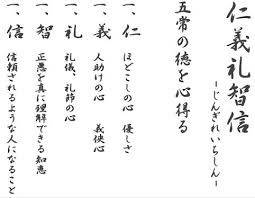 仁義礼智信
ーじんぎれいちしんー
五常の徳を心得る
一、仁
ほどこしの心 優しさ
一、義
人助けの心 義侠心
一、礼
礼儀、礼節の心
一、智
正悪を真に理解できる知恵
一、信
信頼されるような人になること